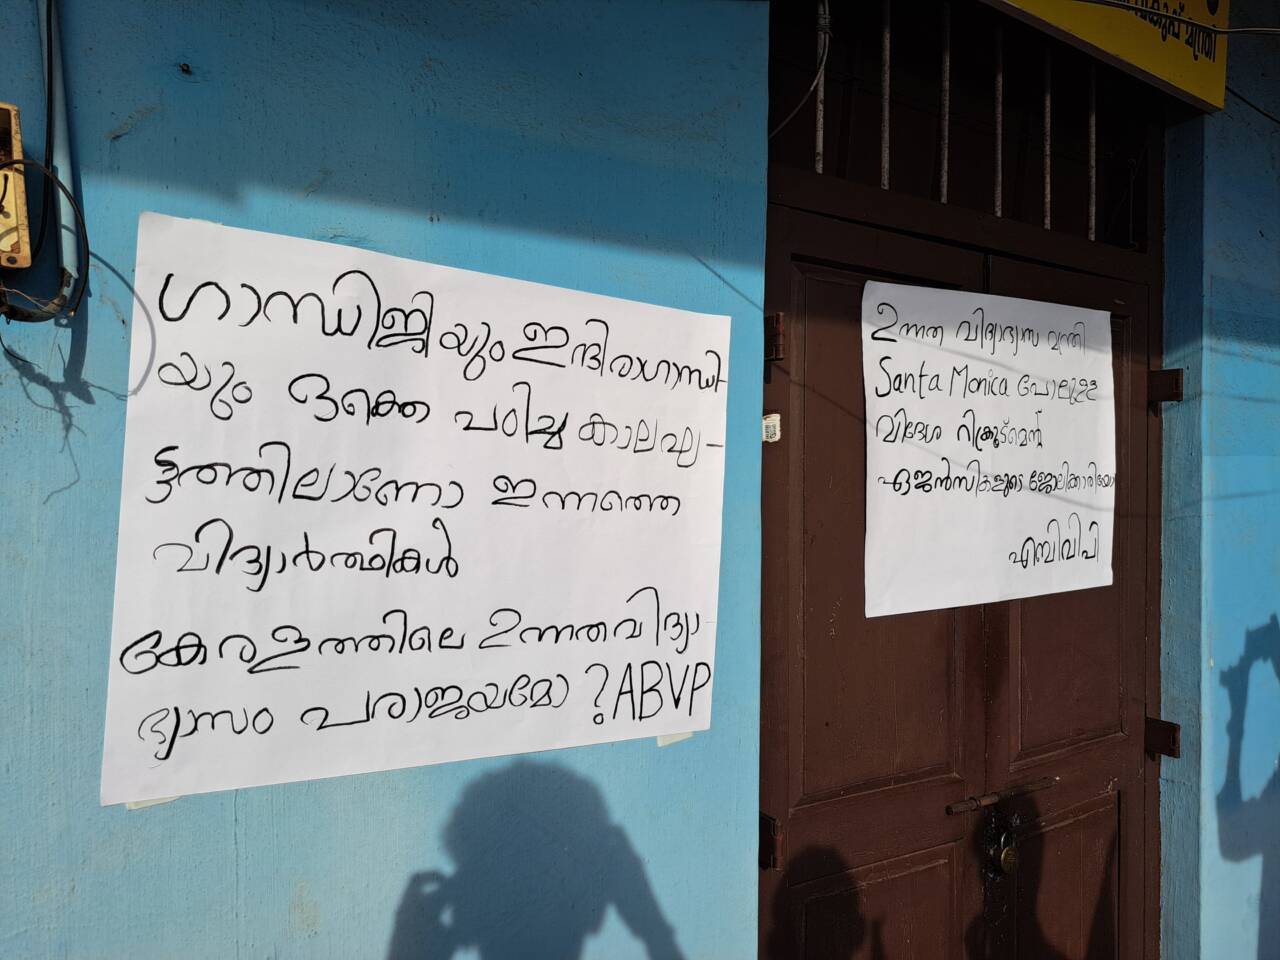 ഗാന്ധിജിയും ഇന്ദിരാഗാന്ധി-
യും ഒക്കെ പഠിച്ച കാലഘ-
ട്ടത്തിലാണോ ഇന്നത്തെ
വിദ്യാർത്ഥികൾ
കേരളത്തിലെ ഉന്നതവിദ്യാ-
ഭ്യാസം പരാജയമോ ? ABVP
ഉന്നത വിദ്യാഭ്യാസ മന്ത്രി
Santa Monica പോലുള്ള
വിദേശ റിക്രൂട്മെന്റ്
ഏജൻസികളുടെ ജോലിക്കാരിയോ
എബിവിപി
മന്ത്രി